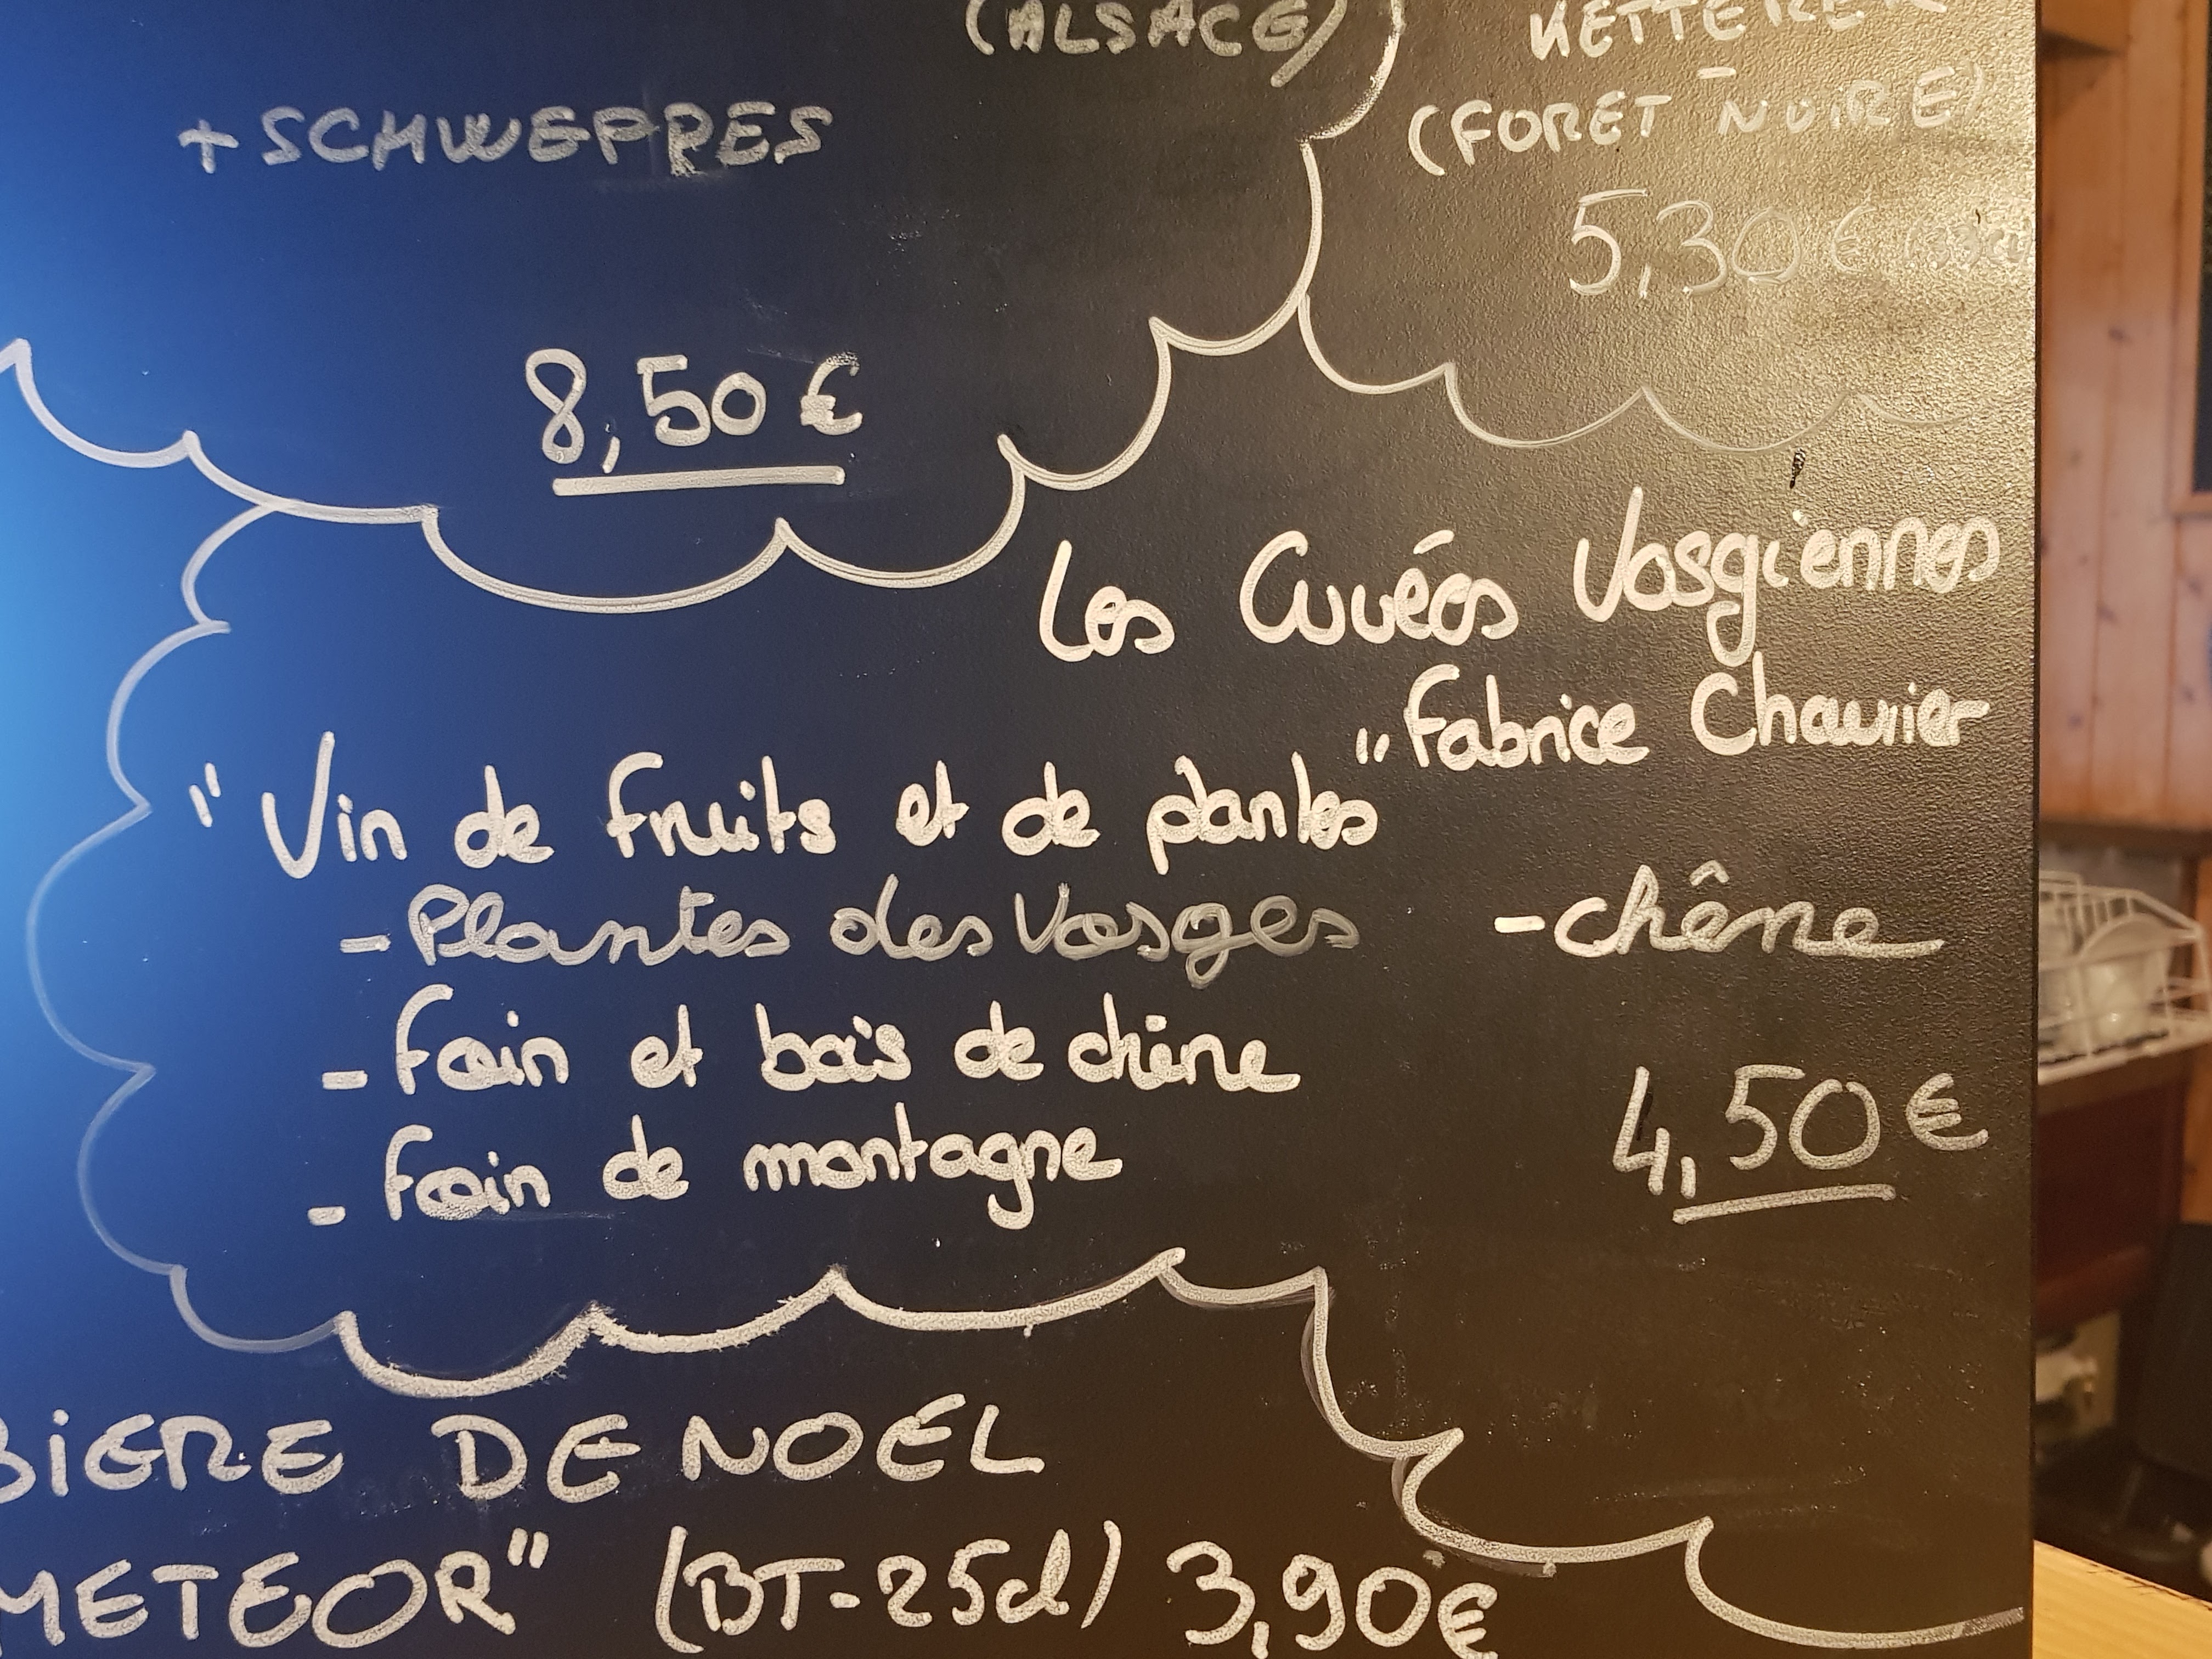 (ALSACE)
+ SCHWEPPES
8,50 €
KETTERER
(FORET NOIRE)
5,30 €
Les Cuvées Vosgiennes
Fabrice Chavrier
"Vin de fruits et de plantes"
- Plantes des Vosges
- chêne
- Foin et bois de chêne
- Foin de montagne
4,50 €
BIERE DE NOËL
METEOR" (BT-25cl) 3,90€